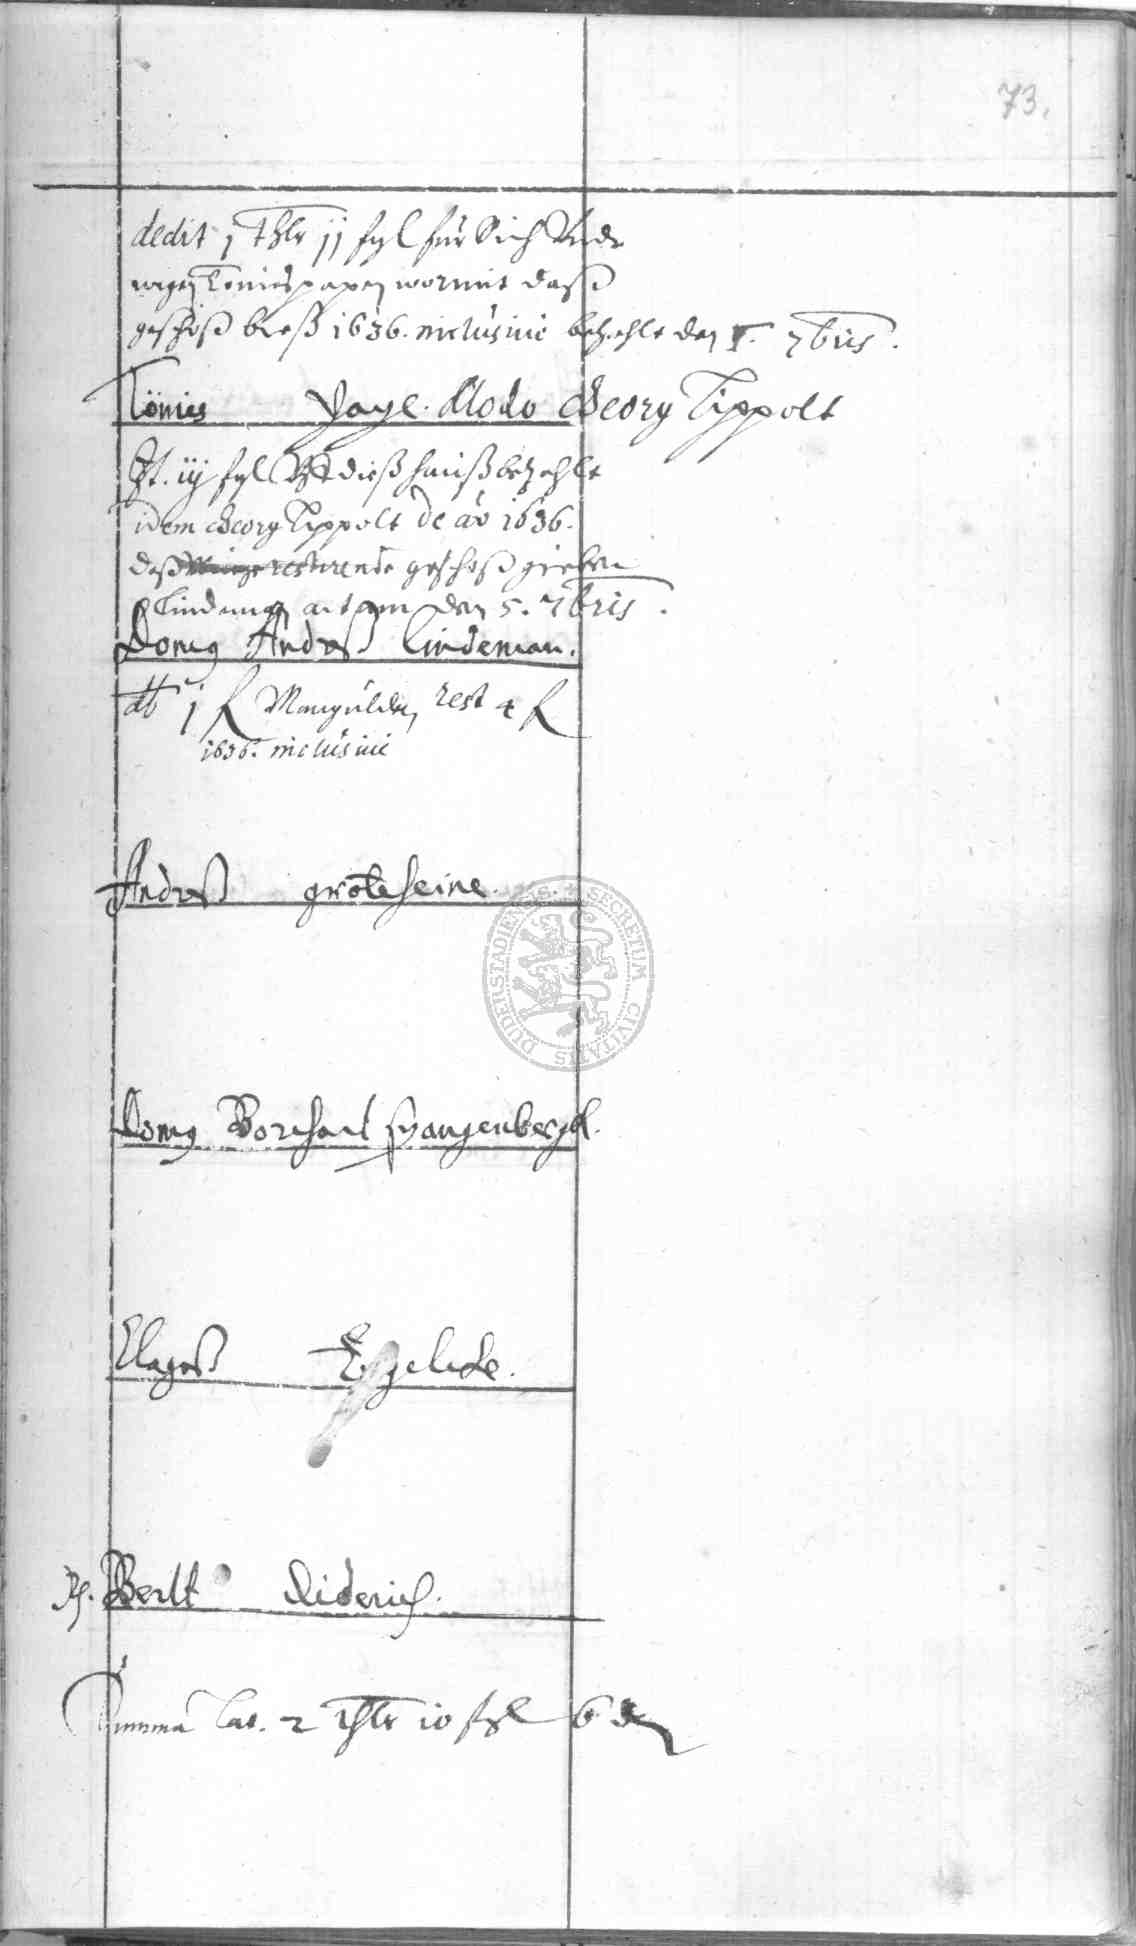 73.
dedit j thlr jj ßgl für Sich Und
wegen Tönies papen wormit daß
geschoß bieß 1636. inclusiue bezahlt den 7bris.
Tönies Pape. Modo Georg Tippolt
dt. iij ßgl dieß hauß bezahlt
idem Georg Tippolt de ao 1636.
daß restirende geschoß
Lindeman den 5. 7bris.
Domus Andreß Lindeman.
dt j fl Mangulden rest 4 fl
1636. inclusiue
Andreß groteheine.
DUDERSTADIENSIS SECRETUM CIVITATIS
Domus Borchart spangenbergk.
Clageß Engelcke.
Berlt Diderich.
Summa Lat. 2 thlr 10 ßgl 6 d